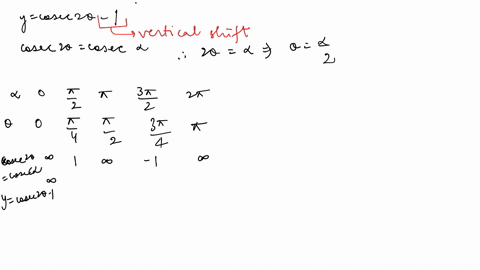 y=cosec2θ-1
vertical shift
cosec2θ=cosec α ∴ 2θ=α ⇒ θ=α/2
α 0 π/2 π 3π/2 2π
θ 0 π/4 π/2 3π/4 π
cosec2θ ∞ 1 ∞ -1 ∞
=cosecα
∞
y=cosec2θ-1